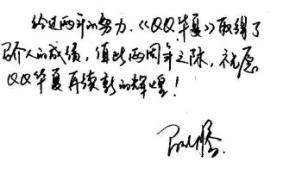 经过两年的努力,《QQ华夏》取得了
惊人的成绩,值此两周年之际,祝愿
QQ华夏再续新的辉煌!